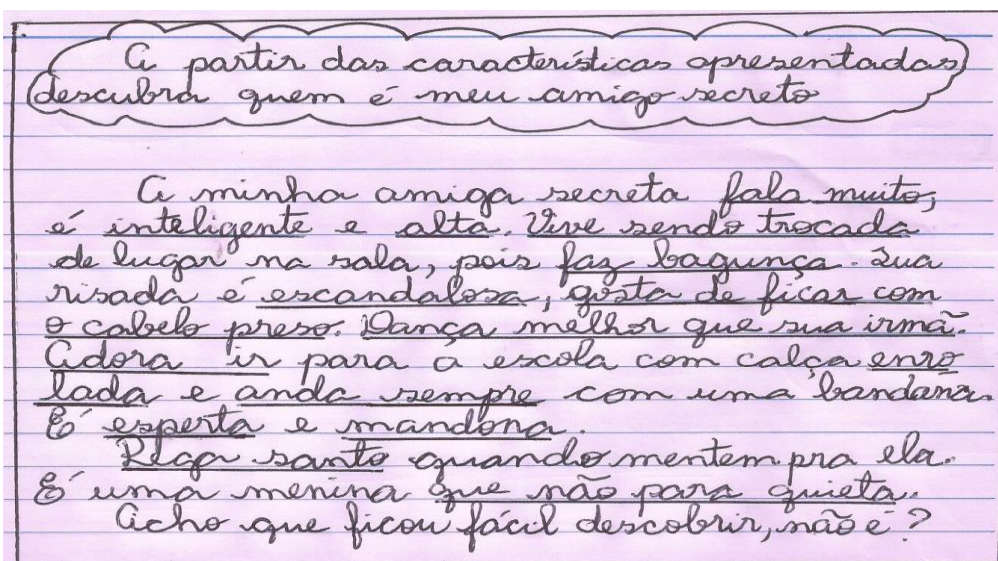 A partir das características apresentadas
descubra quem é meu amigo secreto
A minha amiga secreta fala muito,
é inteligente e alta. Vive sendo trocada
de lugar na sala, pois faz bagunça. Sua
risada é escandalosa, gosta de ficar com
o cabelo preso. Dança melhor que sua irmã.
Adora ir para a escola com calça enro
lada e anda sempre com uma bandana.
É esperta e mandona.
Roga santo quando mentem pra ela.
É uma menina que não para quieta.
Acho que ficou fácil descobrir, não é?